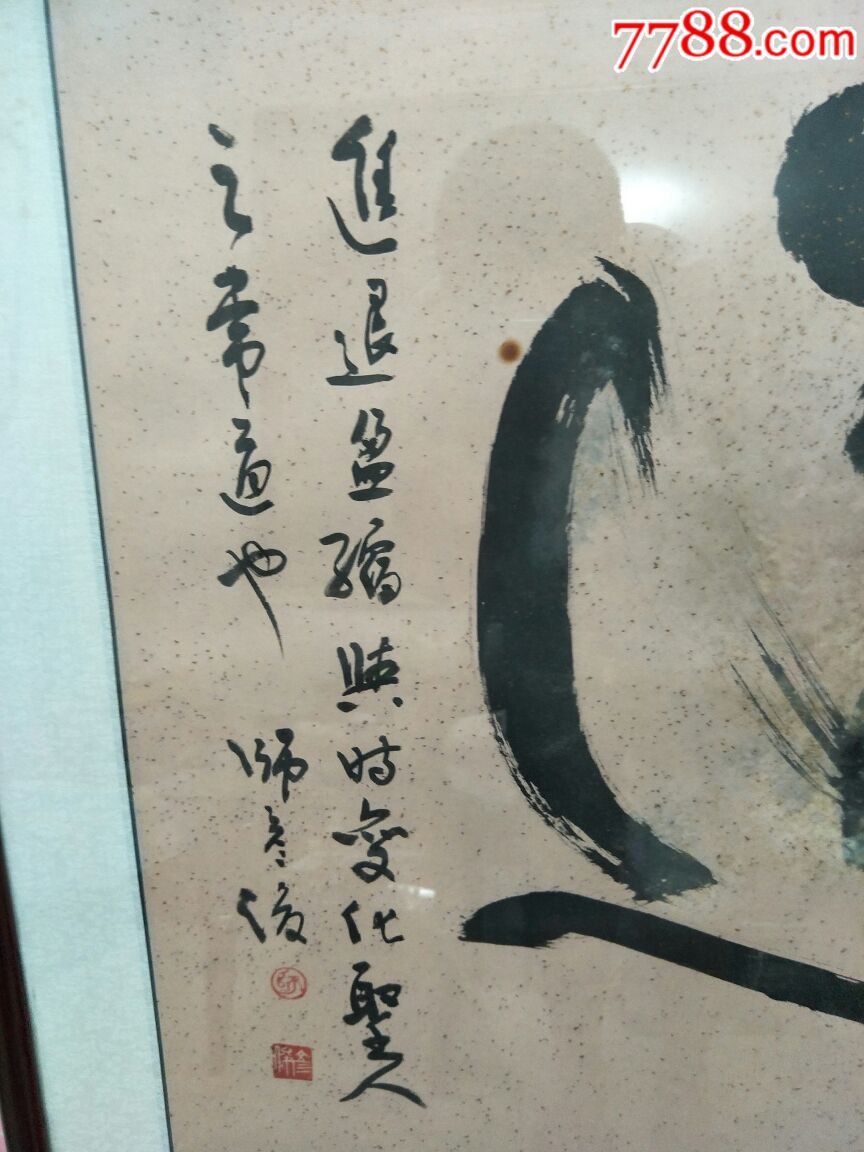 7788.com
進退盈縮與時變化聖人
之常道也
師彥俊